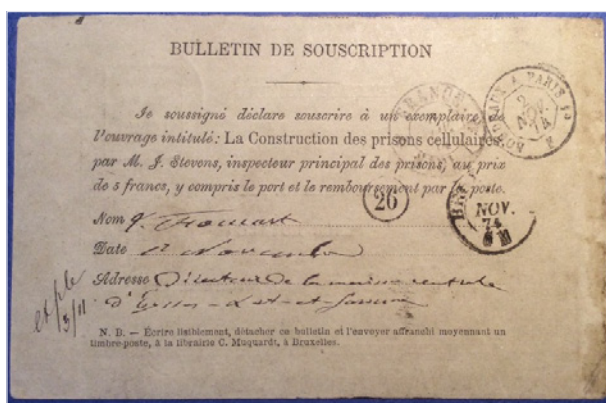 BULLETIN DE SOUSCRIPTION
Je soussigné déclare souscrire à un exemplaire
l'ouvrage intitulé: La Construction des prisons cellulaires,
par M. J. Stevens, inspecteur principal des prisons, au prix
de 5 francs, y compris le port et le remboursement par la poste.
Nom
Date
Adresse Directeur de la maison centrale
d'Eysses - Lot-et-Garonne
N. B. — Écrire lisiblement, détacher ce bulletin et l'envoyer affranchi moyennant un
timbre-poste, à la librairie C. Muquardt, à Bruxelles.
26
BORDEAUX A PARIS
2
NOV.
74
NOV.
74